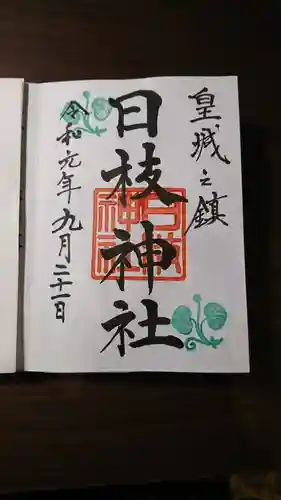 皇城之鎮
日枝神社
令和元年九月二十一日
日枝神社